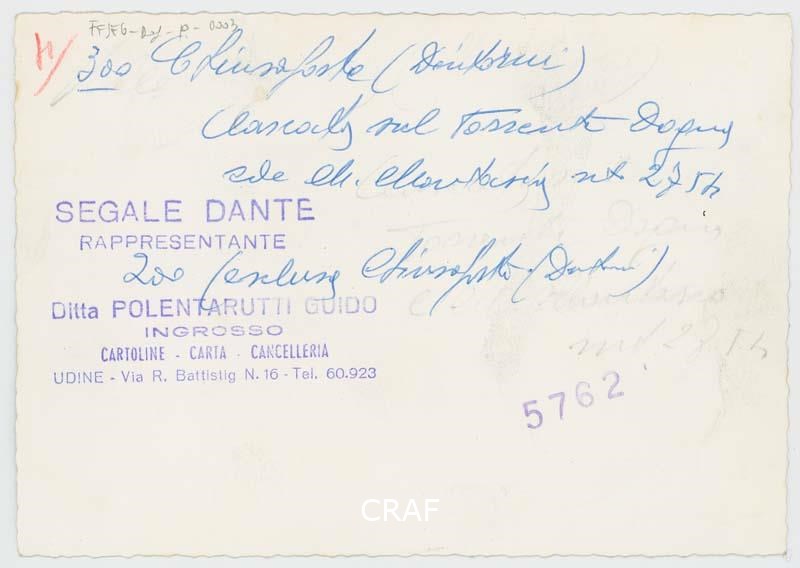 300 Chiusaforte (Dintorni)
Cascata sul Torrente Dogna
e M. Montasio mt. 2754
SEGALE DANTE
RAPPRESENTANTE
200 (esclusa Chiusaforte (Dintorni)
Ditta POLENTARUTTI GUIDO
INGROSSO
CARTOLINE - CARTA - CANCELLERIA
UDINE - Via R. Battistig N. 16 - Tel. 60.923
5762
CRAF